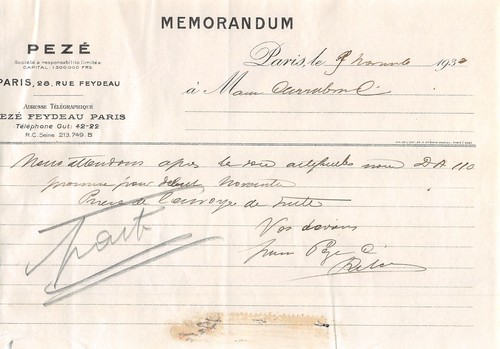 MEMORANDUM
PEZÉ
Société à responsabilité limitée
CAPITAL: 1.300.000 FRS
PARIS, 28, RUE FEYDEAU
ADRESSE TÉLÉGRAPHIQUE
PEZÉ FEYDEAU PARIS
Téléphone Gut: 42-22
R.C. Seine 213.749 B
Paris, le 9 Novembre 1930
à
Nous attendons après la soie artificielle noire DA 110
promise pour début Novembre
Prière de l'envoyer de suite
Vos dévoués
pour Pezé